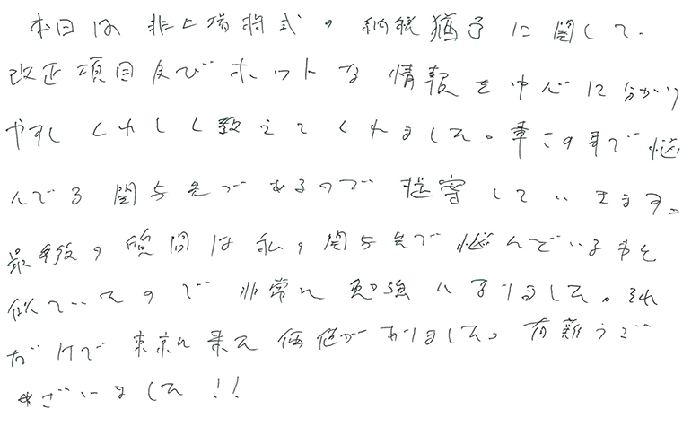 本日は非上場株式の納税猶予に関して、
改正項目及びホットな情報を中心に分かり
やすくくわしく教えてくれました。事この事で悩
んでる関与先があるので している います。
最後の質問は私の関与先で悩んでいる事と
似ていたので非常に勉強になりました。それ
だけで東京に来た価値がありました。有難うご
ございました!!